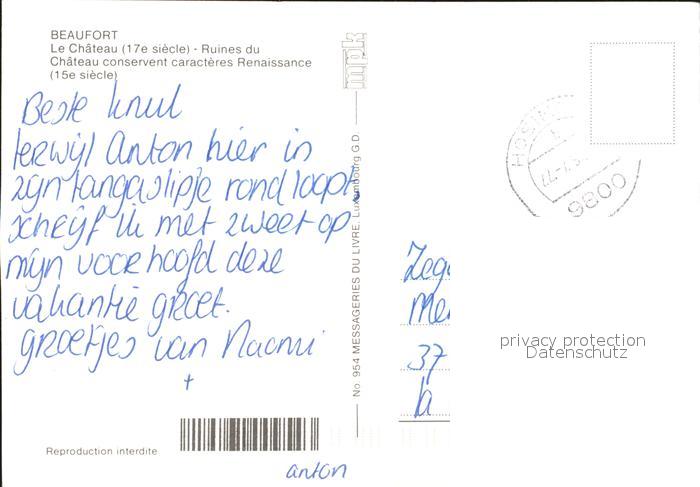 BEAUFORT
Le Château (17e siècle) - Ruines du
Château conservent caractères Renaissance
(15e siècle)
Beste knul
terwijl Anton hier in
zijn tangaslipje rond loopt,
schrijf ik met zweet op
mijn voorhoofd deze
vakantie groet.
groetjes van Naomi
+
anton
Reproduction interdite
No. 954 MESSAGERIES DU LIVRE, Luxembourg G.D.
mpk
HOSING
9800
37
privacy protection
Datenschutz